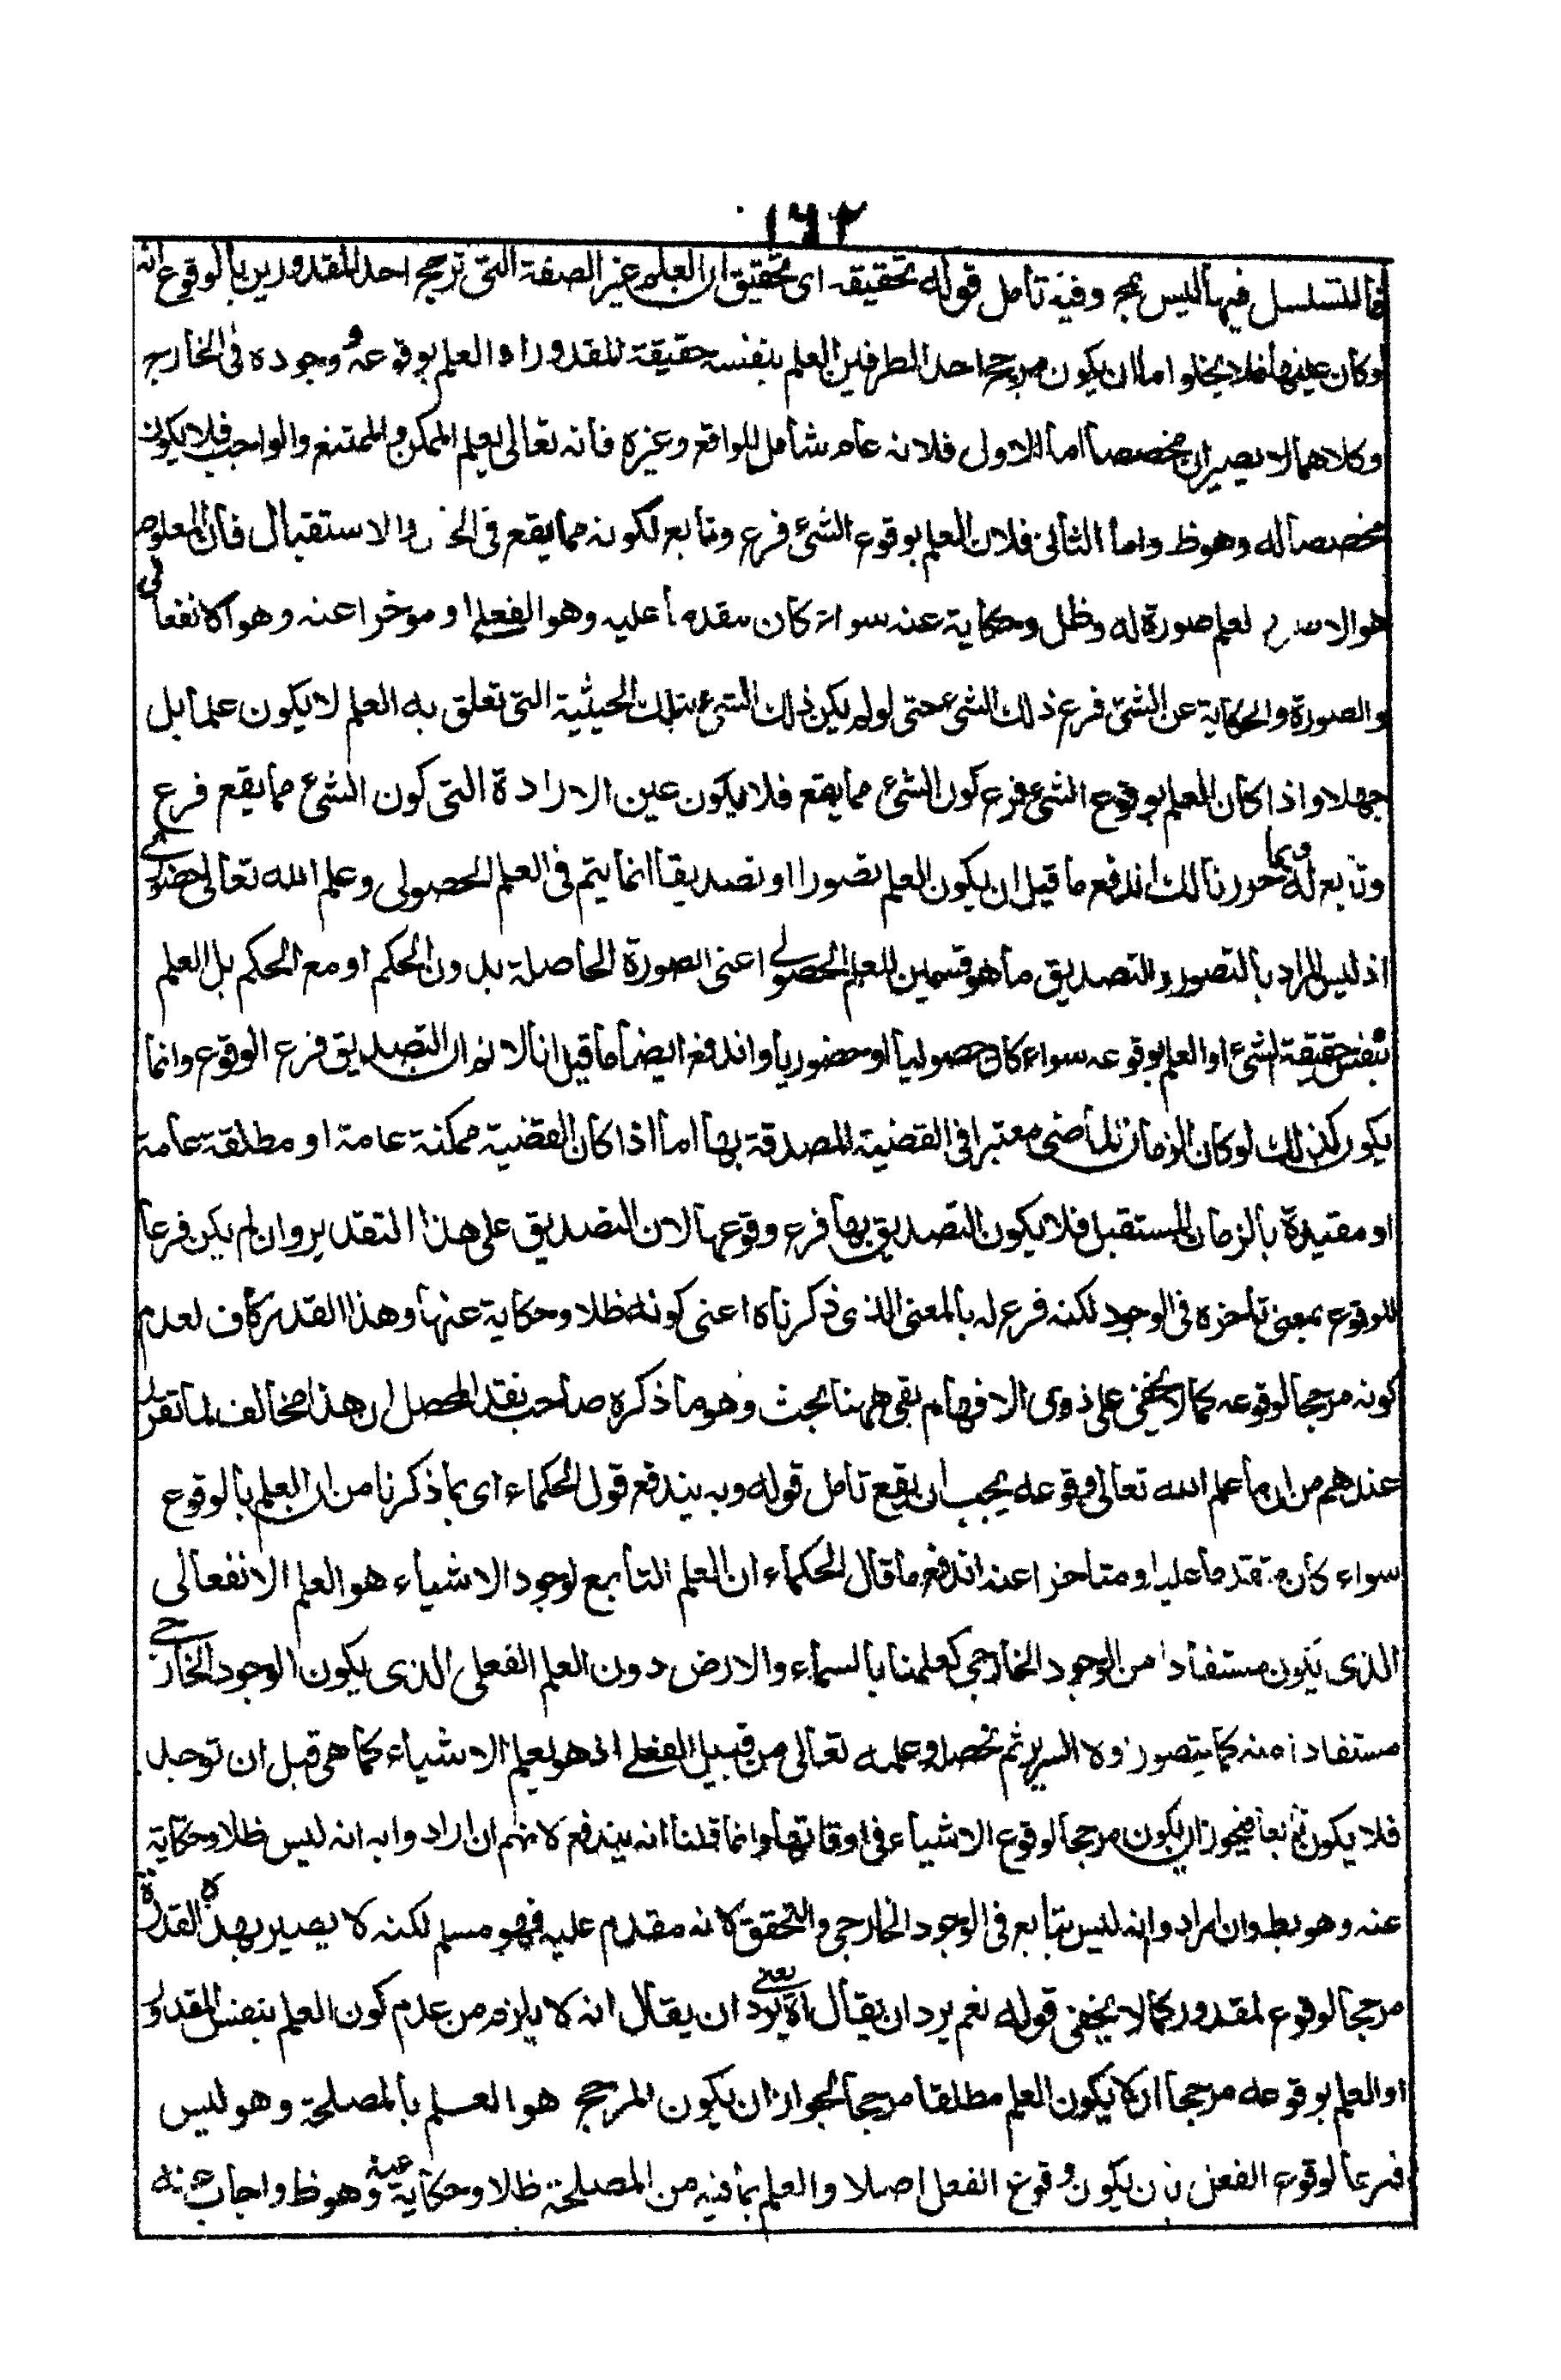 ١٦٢
فالتسلسل فيها ليس بمح وفيه تأمل قوله تحقيقه اى تحقيق ان العلم غير الصفة التى ترجح احد المقدورين بالوقوع انه
لو كان عينها فلا يخلوا ما ان يكون مرجح احد الطرفين العلم بنفسه حقيقة المقدور او العلم بوقوعه ووجوده فى الخارج
وكلاهما لا يصيران مخصصا اما الاول فلانه عام شامل للواقع وغيره فانه تعالى يعلم الممكن والممتنع والواجب فلا يكون
مخصصا له وهو ظ واما الثانى فلان العلم بوقوع الشئ فرع وتابع لكونه مما يقع فى والاستقبال فان المعلوم
هو الا لعلم صورة له وظل وحكاية عنه سواء كان مقدما عليه وهو الفعلى او موخرا عنه وهو الانفعالى
والصورة والحكاية عن الشئ فرع ذلك الشئ حتى لو لم يكن ذلك الشئ بتلك الحيثية التى تعلق به العلم لا يكون علما بل
جهلا واذا كان العلم بوقوع الشئ فرع كون الشئ مما يقع فلا يكون عين الارادة التى كون الشئ مما يقع فرع
وتابع له وبما حررنا لك اندفع ما قيل ان يكون العلم تصورا او تصديقا انما يتم فى العلم الحصولى وعلم الله تعالى حضورى
اذ ليس المراد بالتصور والتصديق ما هو قسمين للعلم الحصولى اعنى الصورة الحاصلة بدون الحكم او مع الحكم بل العلم
بنفس حقيقة الشئ او العلم بوقوعه سواء كان حصوليا او حضوريا واندفع ايضا ما قيل انا لا نم ان التصديق فرع الوقوع وانما
يكون كذلك لو كان الزمان الماضى معتبرا فى القضية المصدقة بها اما اذا كان القضية ممكنة عامة او مطلقة عامة
او مقيدة بالزمان المستقبل فلا يكون التصديق بها فرع وقوعها لان التصديق على هذا التقدير وان لم يكن فرعا
للوقوع بمعنى تاخره فى الوجود لكنه فرع له بالمعنى الذى ذكرناه اعنى كونه ظلا وحكاية عنها وهذا القدر كاف لعدم
كونه مرجحا لوقوعه كما لا يخفى على ذوى الافهام بقى ههنا بحث وهو ما ذكره صاحب نقد المحصل ان هذا مخالف لما تقرر
عندهم من ان ما علم الله تعالى وقوعه يجب ان يقع تأمل قوله وبه يندفع قول الحكماء اى بما ذكرنا من ان العلم بالوقوع
سواء كان متقدما عليه او متاخرا عنه اندفع ما قال الحكماء ان العلم التابع لوجود الاشياء هو العلم الانفعالى
الذى يكون مستفادا من الوجود الخارجى كعلمنا بالسماء والارض دون العلم الفعلى الذى يكون الوجود الخارجى
مستفادا منه كما يتصور اولا السرير ثم نحصله وعلمه تعالى من قبيل الفعلى اذ هو يعلم الاشياء كما هى قبل ان توجد
فلا يكون تابعا فيجوز ان يكون مرجحا لوقوع الاشياء فى اوقاتها وانما قلنا انه يندفع لانهم ان ارادوا به انه ليس ظلا وحكاية
عنه وهو بط وان ارادوا انه ليس بتابع فى الوجود الخارجى والتحقق لانه مقدم عليه فهو مسلم لكنه لا يصير بهذه القدرة
مرجحا لوقوع لمقدور كما لا يخفى قوله نعم يرد ان يقال اه يعنى يرد ان يقال انه لا يلزم من عدم كون العلم بنفس المقدور
او العلم بوقوعه مرجحا ان لا يكون العلم مطلقا مرجحا لجواز ان يكون المرجح هو العلم بالمصلحة وهو ليس
فرعا لوقوع الفعل بان يكون وقوع الفعل اصلا والعلم بما فيه من المصلحة ظلا وحكاية عنه وهو ظ واجاب عنه